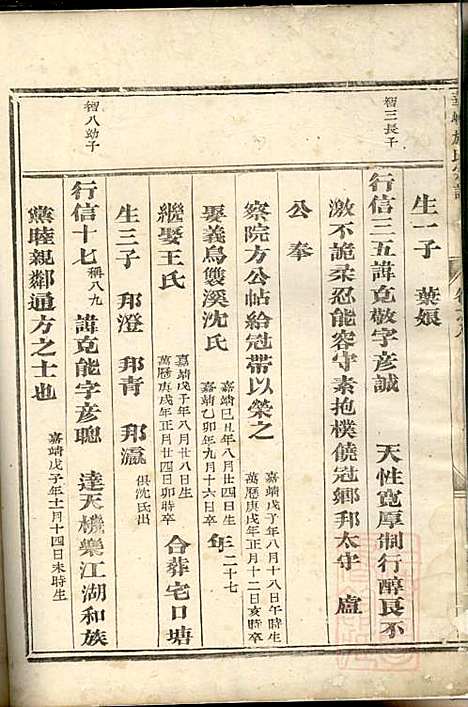 智三長子
生一子　葉娘
行信三五諱克敬字彥誠　天性寬厚制行醇良不
激不詭柔忍能容守素抱樸饒冠鄉邦太守　盧
公奉
察院方公帖給冠帶以榮之　嘉靖戊子年八月十八日午時生　萬曆庚戌年正月十二日亥時卒
娶義烏雙溪沈氏　嘉靖己丑年八月廿四日生　嘉靖乙卯年九月十六日卒　年二十七
繼娶王氏　嘉靖戊子年八月廿八日生　萬曆庚戌年正月廿四日卯時卒　合葬宅口塘
生三子　邦澄　邦青　邦瀛　俱沈氏出
智八幼子
行信十七稱八九　諱克能字彥聰　達天機樂江湖和族
黨睦親鄰通方之士也　嘉靖戊子年十一月十四日未時生